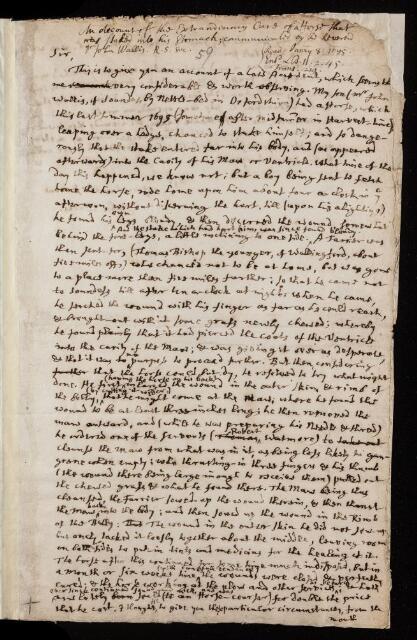 An Account of the Extraordinary Cure of a Horse that
was staked into his Stomach, communicated by the Reverd
Dr John Wallis. R.S. Soc.
59
Read
Sir,
This is to give you an account of a late Accident, which seems to
me very considerable & worth observing. My son (Mr John
Wallis, of Soundess by Nettlebed in Oxfordshire) had a Horse, which
this last summer 1695 (sometime after midsummer in Harvest-time)
leaping over a hedge, chanced to stake himself; and so dange-
rously that the stake entered far into his body, and (as appeared
afterwards) into the Cavity of his Maw or Ventricle. What time of the
day this happened, we know not; but a boy being sent to fetch
home the horse, rode home upon him about four a clock in ye
afternoon, without discerning the hurt, till (upon his alighting)
he found his own legs bloody, & then discerned the wound, somewhat
And the stake which had hurt him was since found bloody
behind the fore legs, a little inclining to one side. A Farrier was
then sent for, (Thomas Bishop the younger, of Wallingford, about
six miles off) who chanced not to be at home, but was gone
to a place more than six miles further; so that he came not
to Soundess till after ten a clock at night. When he came,
he searched the wound with his finger as far as he could reach,
& brought out with it some grass newly chewed: whereby
he found plainly that it had pierced the Coats of the Ventricle
into the cavity of the Maw; & was giving it over as desperate
& that it was to no purpose to proceed further. But then considering
that the horse could but dy, he resolved to try what might
done. He first (laying the horse on his back) the wound in the outer skin, & rimb of
the belly, that he might come at the maw, where he found the
wound to be at least three inches long; he then removed the
maw outward, and (while he was preparing his Needle & thred)
he ordered one of the servants (Robert Watmore) to
cleanse the maw from what was in it, as being less likely to gan-
grene when empty; who thrusting in three fingers & his thumb
(the wound there being large enough to receive them) pulled out
the chewed grass & what he found there. The Maw being thus
cleansed, the Farrier sowed up the wound therein, & then thrust
the maw back into the body; and then sowed up the wound in the Rimb
of the Belly: But the wound in the outer skin he did not sow up
but onely tacked it loosly together about the middle, leaving room
on both sides to put in tents and medicines for the healing of it.
The horse after this continued some time much indisposed, but in
a month or six weeks time the wounds were closed & perfectly
cured; & the horse working at the plow and other services
for double the price
that he cost. I thought to give you these particular circumstances, from the
mouth